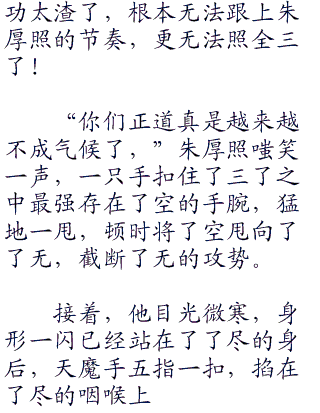 功太渣了，根本无法跟上朱
厚照的节奏，更无法照全三
了！
“你们正道真是越来越
不成气候了，”朱厚照嗤笑
一声，一只手扣住了三了之
中最强存在了空的手腕，猛
地一甩，顿时将了空甩向了
了无，截断了无的攻势。
接着，他目光微寒，身
形一闪已经站在了了尽的身
后，天魔手五指一扣，掐在
了尽的咽喉上